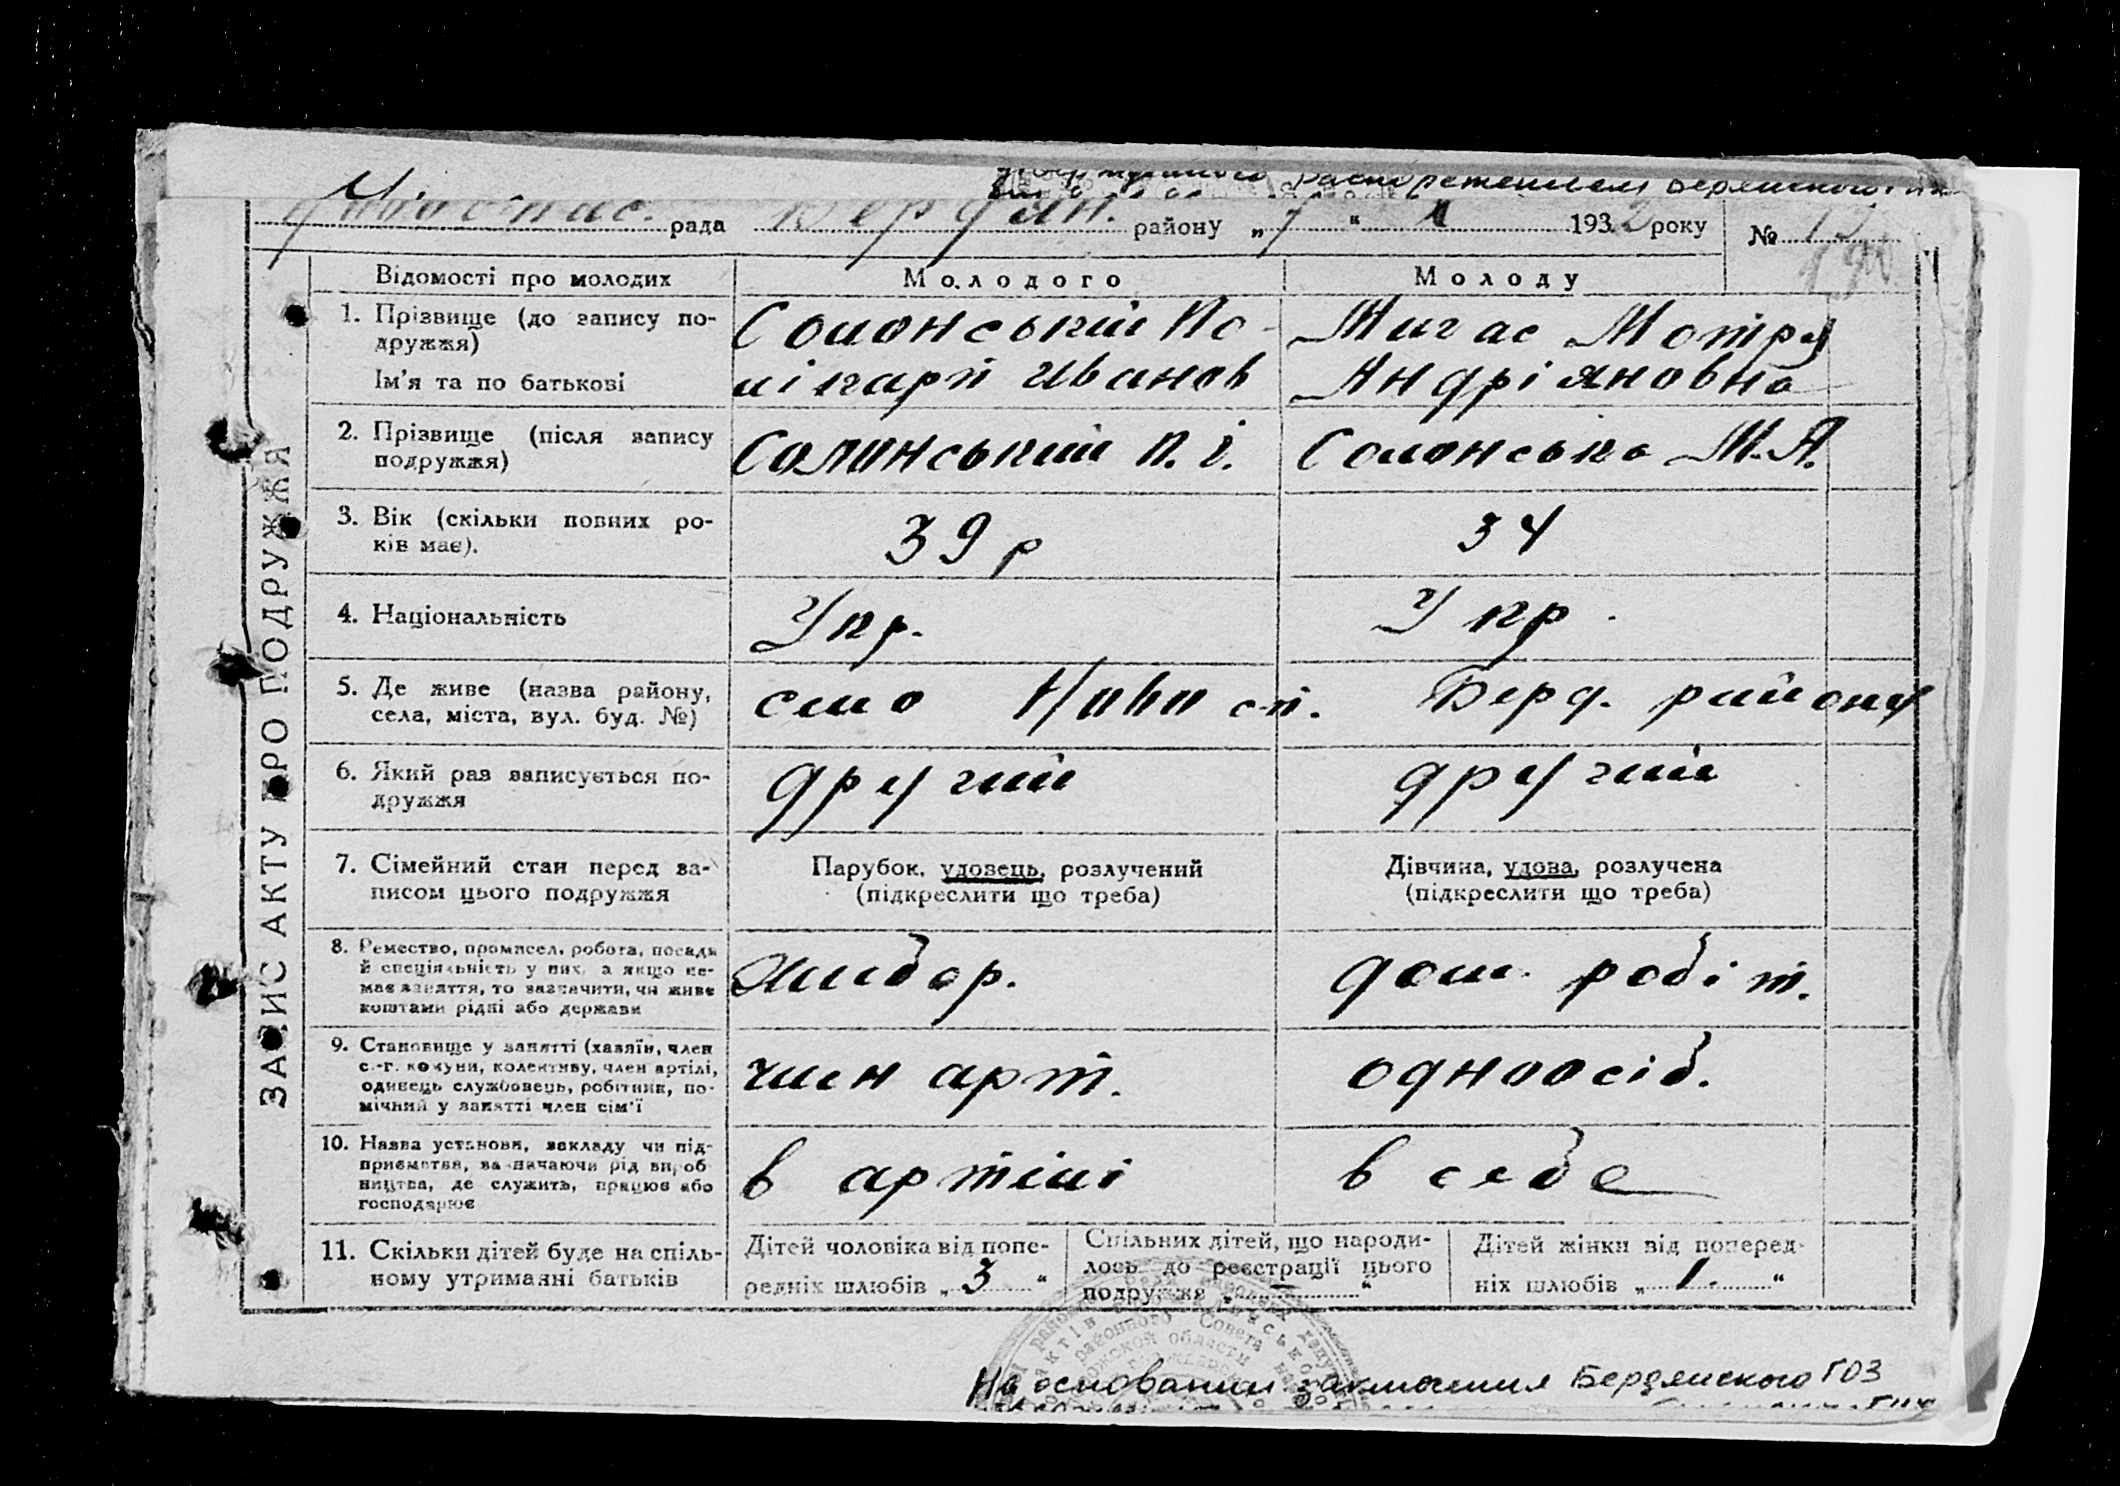 Новоспас. рада Бердян. району „7“ X 1932 року № 12
Відомості про молодих Молодого Молоду
1. Прізвище (до запису по- Солонський По- Мигас Мотря
дружжя)
Ім'я та по батькові лікарп Иванов Андріяновна
2. Прізвище (після запису Солонський П. І. Солонська М.А.
подружжя)
3. Вік (скільки повних ро- 39 р 34
ків має).
4. Національність Укр. Укр.
5. Де живе (назва району, село Новосп. Берд. району
села, міста, вул. буд. №)
6. Який раз записується по- другий другий
дружжя
7. Сімейний стан перед за- Парубок, удовець, розлучений Дівчина, удова, розлучена
писом цього подружжя (підкреслити що треба) (підкреслити що треба)
8. Ремество, промисел, робота, посада хлібор. дом. робіт.
й спеціяльність у них, а якщо не-
має заняття, то зазначити, чи живе
коштами рідні або держави
9. Становище у занятті (хазяїн, член член арт. одноосіб.
с.-г. комуни, колективу, член артілі,
одинець службовець, робітник, по-
мічний у занятті член сім'ї
10. Назва установи, закладу чи під- в артілі в себе
приємства, зазначаючи рід вироб
ництва, де служить, працює або
господарює
11. Скільки дітей буде на спіль- Дітей чоловіка від попе- Спільних дітей, що народи- Дітей жінки від поперед-
ному утриманні батьків редніх шлюбів „ 3 “ лось до реєстрації цього ніх шлюбів „ 1. “
подружжя „ — “
ЗАПИС АКТУ ПРО ПОДРУЖЖЯ
На основании заключения Бердянского ГОЗ